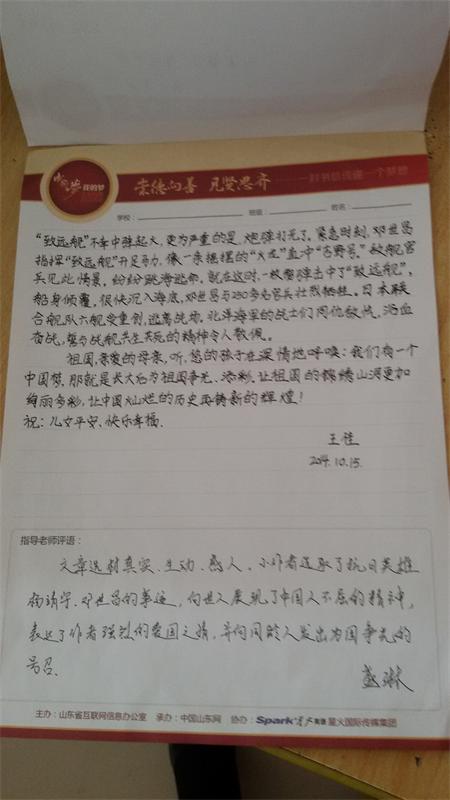 中国梦 我的梦
崇德向善 见贤思齐
一封书信传递一个梦想
学校: 班级: 姓名:
“致远舰”不幸中弹起火,更为严重的是,炮弹打光了,紧急时刻,邓世昌
指挥“致远舰”开足马力,像一条摇摆的“火龙”直冲“吉野号”敌舰官
兵见此情景,纷纷跳海逃命,就在这时,一枚鱼雷击中了“致远舰”,
船身倾覆,很快沉入海底,邓世昌与250多名官兵壮烈牺牲。日本联
合舰队六舰受重创,逃离战场,北洋海军的战士们同仇敌忾、浴血
奋战,誓与战舰共生共死的精神令人敬佩。
祖国,亲爱的母亲,听,您的孩子在深情地呼唤:我们有一个
中国梦,那就是长大后为祖国争光、添彩,让祖国的锦绣山河更加
绚丽多彩,让中国灿烂的历史再铸新的辉煌!
祝:儿女平安、快乐幸福.
王佳
2014.10.15.
指导老师评语:
文章选材真实、生动、感人,小作者选取了抗日英雄
杨靖宇、邓世昌的事迹,向世人展现了中国人不屈的精神,
表达了作者强烈的爱国之情,并向同龄人发出为国争光的
号召.
盛琳
主办:山东省互联网信息办公室 承办:中国山东网 协办:Spark 星火英语 星火国际传媒集团